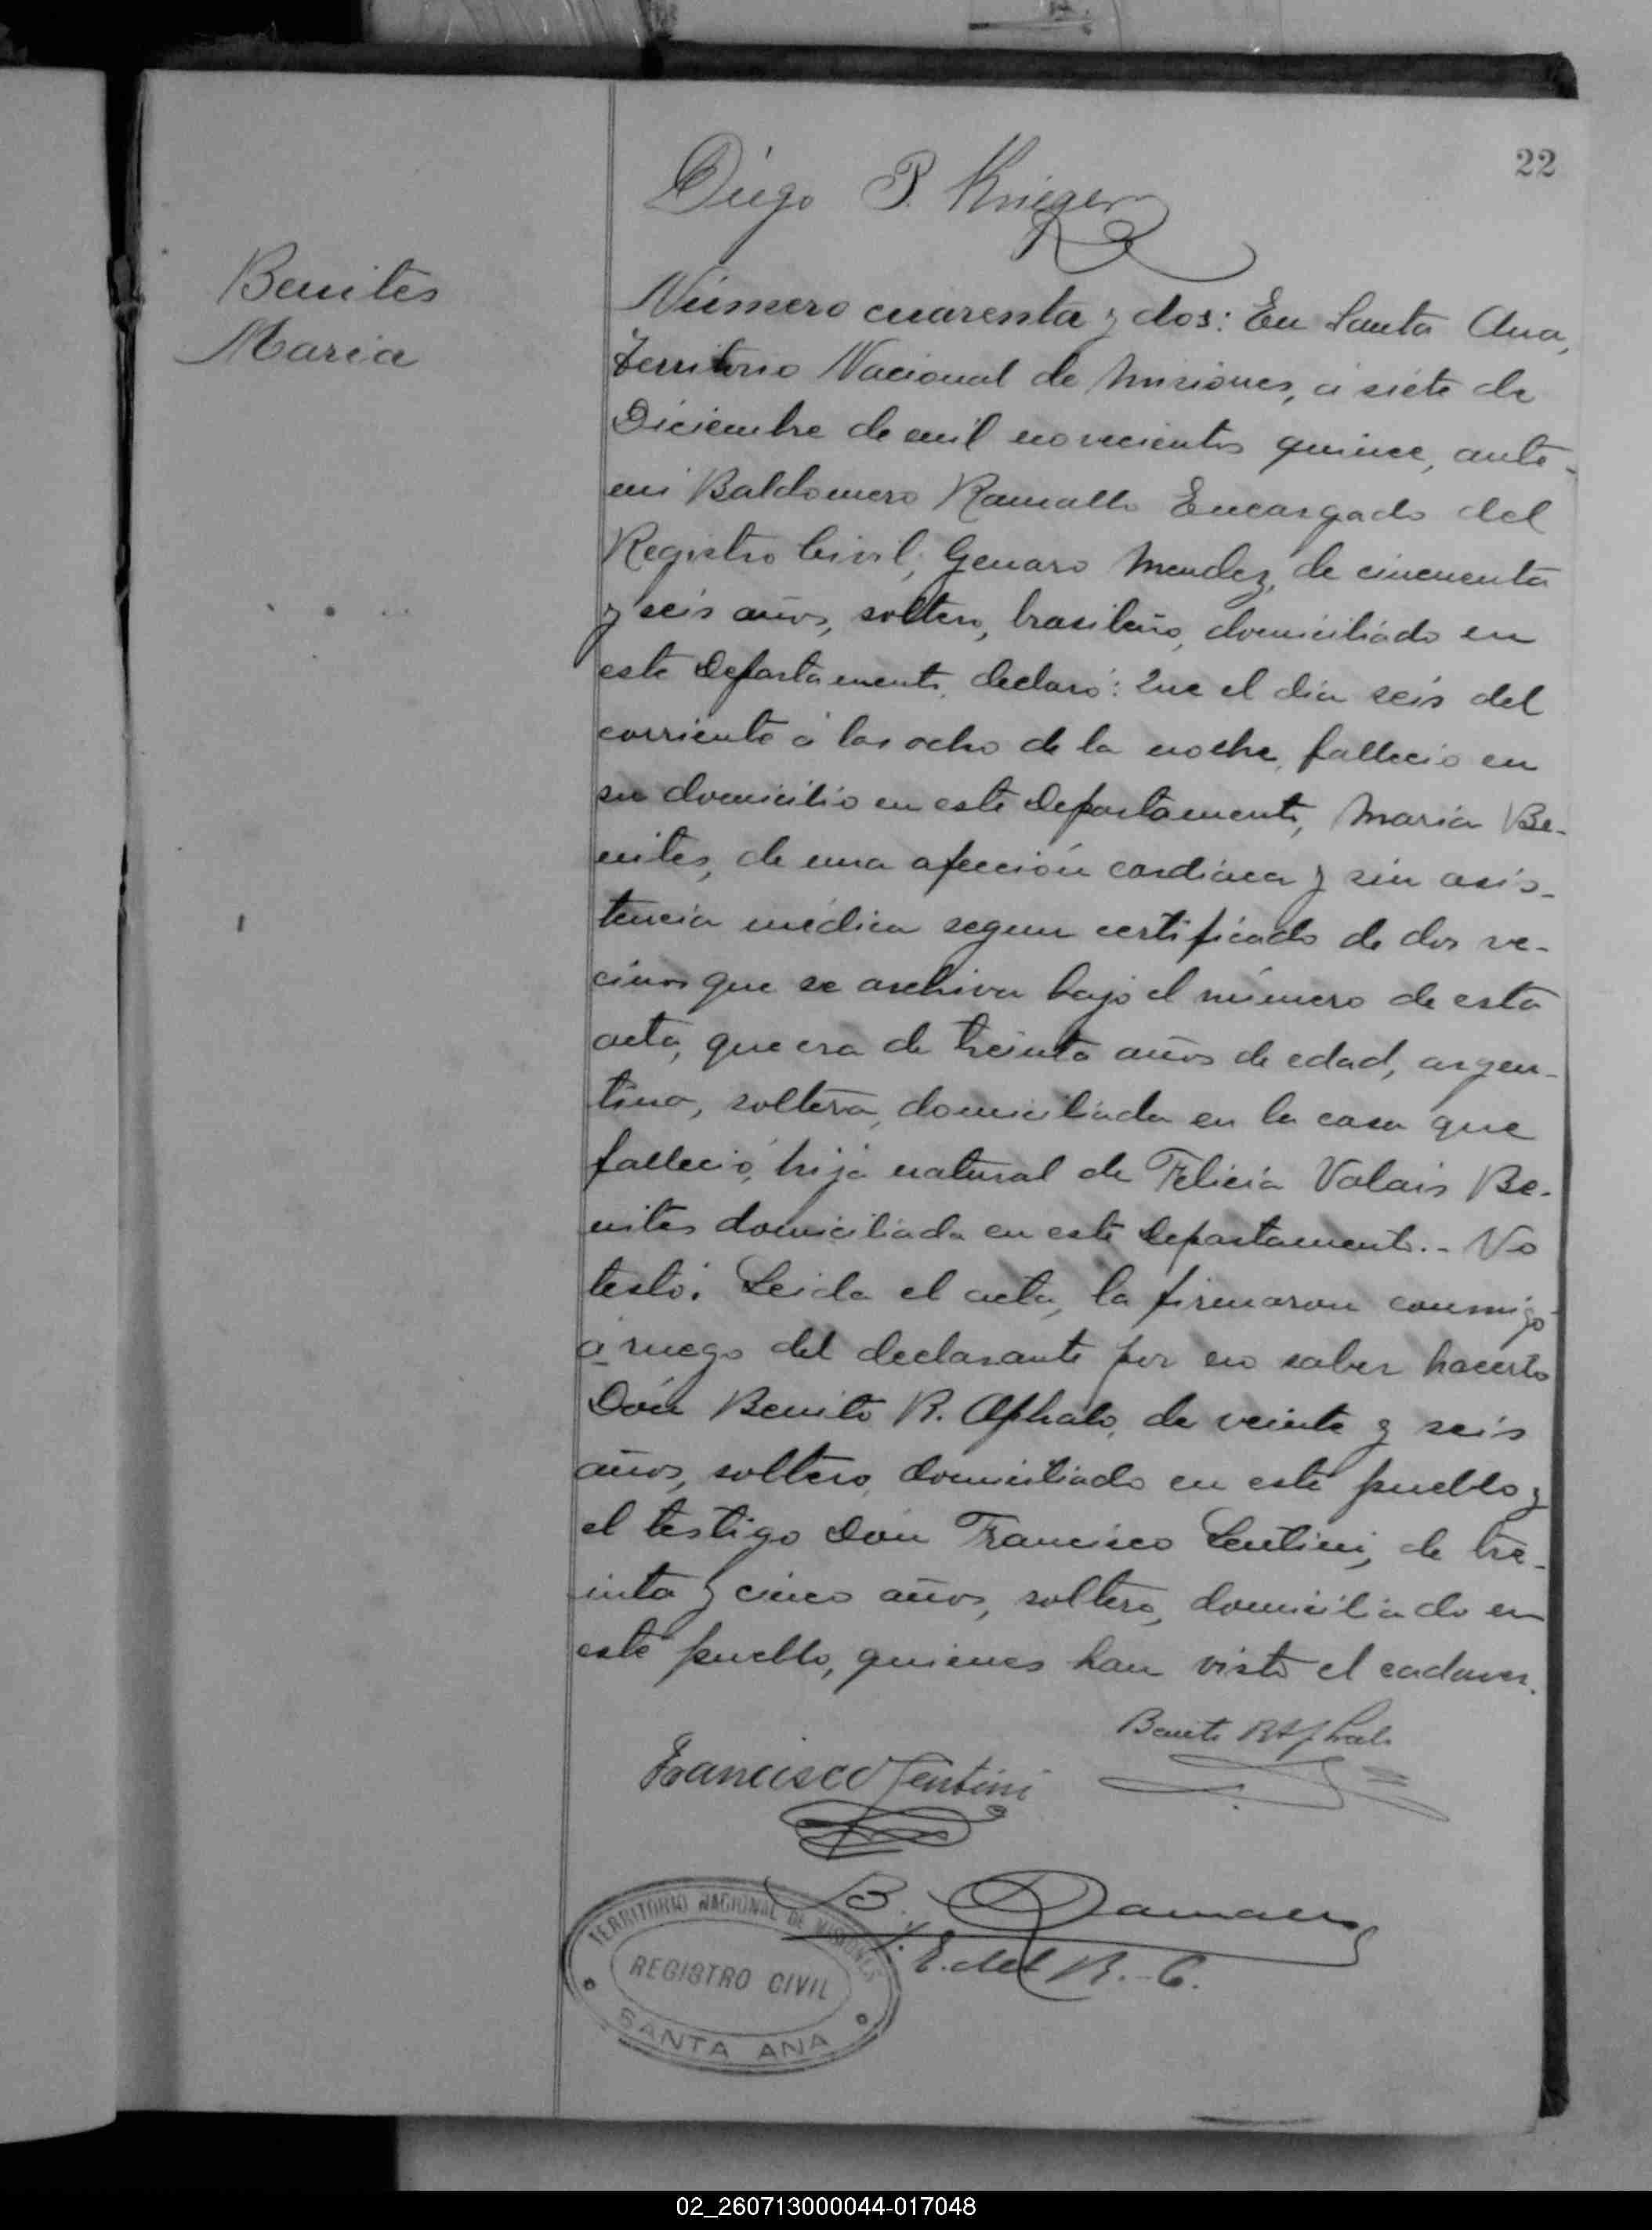 22
Diego P. Krieger
Benites
Maria
Número cuarenta y dos: En Santa Ana,
Territorio Nacional de Misiones, á siete de
Diciembre de mil novecientos quince, ante
mi Baldomero Ramallo Encargado del
Registro Civil, Genaro Mendez, de cincuenta
y seis años, soltero, brasileño, domiciliado en
este Departamento, declaró: Que el dia seis del
corriente á las ocho de la noche, falleció en
su domicilio en este Departamento, Maria Be-
nites, de una afección cardiaca y sin asis-
tencia médica segun certificado de dos ve-
cinos que se archiva bajo el número de esta
acta, que era de treinta años de edad, argen-
tina, soltera, domiciliada en la casa que
falleció, hija natural de Felicia Valais Be-
nites domiciliada en este Departamento.- No
testó. Leida el acta, la firmaron conmigo
á ruego del declarante por no saber hacerlo
Dón Benito R. Aphalo, de veinte y seis
años, soltero, domiciliado en este pueblo y
el testigo Dón Francisco Lentini, de tre-
inta y cinco años, soltero, domiciliado en
este pueblo, quienes han visto el cadaver.
Benito R Aphalo
Francisco Lentini
B. Ramallo
E. del R.-C.
TERRITORIO NACIONAL DE MISIONES
REGISTRO CIVIL
SANTA ANA
02_260713000044-017048